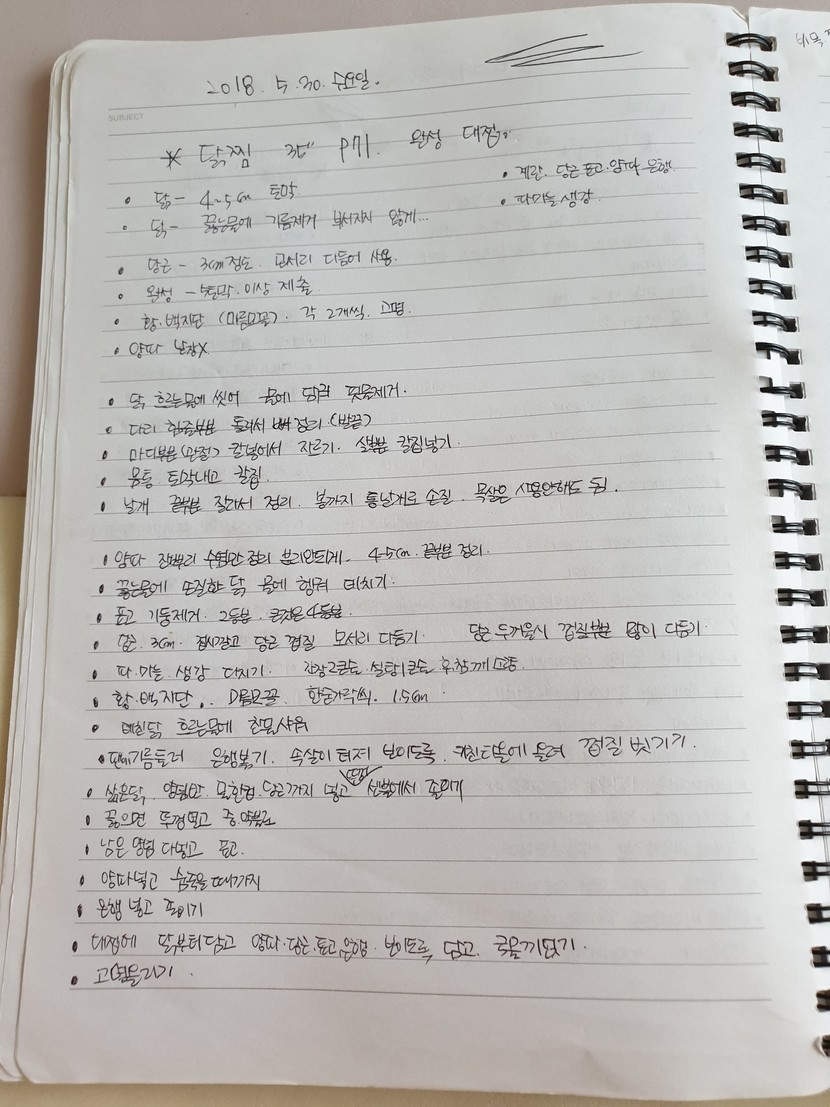 2018. 5. 30. 수요일.
SUBJECT
* 닭찜 35" P71. 완성 대접.
• 계란. 당근 표고. 양파 은행.
• 닭 - 4~5cm 토막
• 파마늘 생강.
• 닭 - 끓는물에 기름제거 부서지지 않게...
• 당근 - 3cm정도. 모서리 다듬어 사용.
• 완성 - 5토막. 이상 제출.
• 황.백지단 (마름모꼴). 각 2개씩. 고명.
• 양파 낱장X.
• 닭 흐르는물에 씻어 물에 담궈 핏물제거.
• 다리 힘줄부분 돌려서 뼈 정리. (발끝)
• 마디부분(관절) 칼넣어서 자르기. 살부분 칼집넣기.
• 몸통 토막내고 칼집.
• 날개 끝부분 잘라서 정리. 봉까지 통날개로 손질. 목살은 사용안해도 됨.
• 양파 잔뿌리 수염만 정리 분리안되게. 4-5cm. 끝부분 정리.
• 끓는물에 손질한 닭 물에 헹궈 데치기.
• 표고 기둥제거. 2등분. 큰것은 4등분.
• 당근. 3cm. 당근 껍질 모서리 다듬기. 당근 두꺼울시 껍질부분 많이 다듬기.
• 파.마늘 생강 다지기. 간장2큰술. 설탕1큰술 후참깨소금.
• 황.백지단.. 마름모꼴. 한숟가락씩. 1.5cm
• 데친닭 흐르는물에 찬물샤워
• 팬에기름둘러 은행볶기. 속살이 터져 보이도록. 키친타올에 올려 껍질 벗기기.
• 삶은닭. 양념반. 물한컵. 당근까지 넣고 센불에서 졸이기
• 끓으면 뚜껑열고 중.약불로
• 남은 양념 다넣고 표고.
• 양파넣고 숨죽을때까지
• 은행 넣고 조이기
• 대접에 닭부터담고 양파.당근.표고.은행. 보이도록 담고. 국물끼얹기.
• 고명올리기.